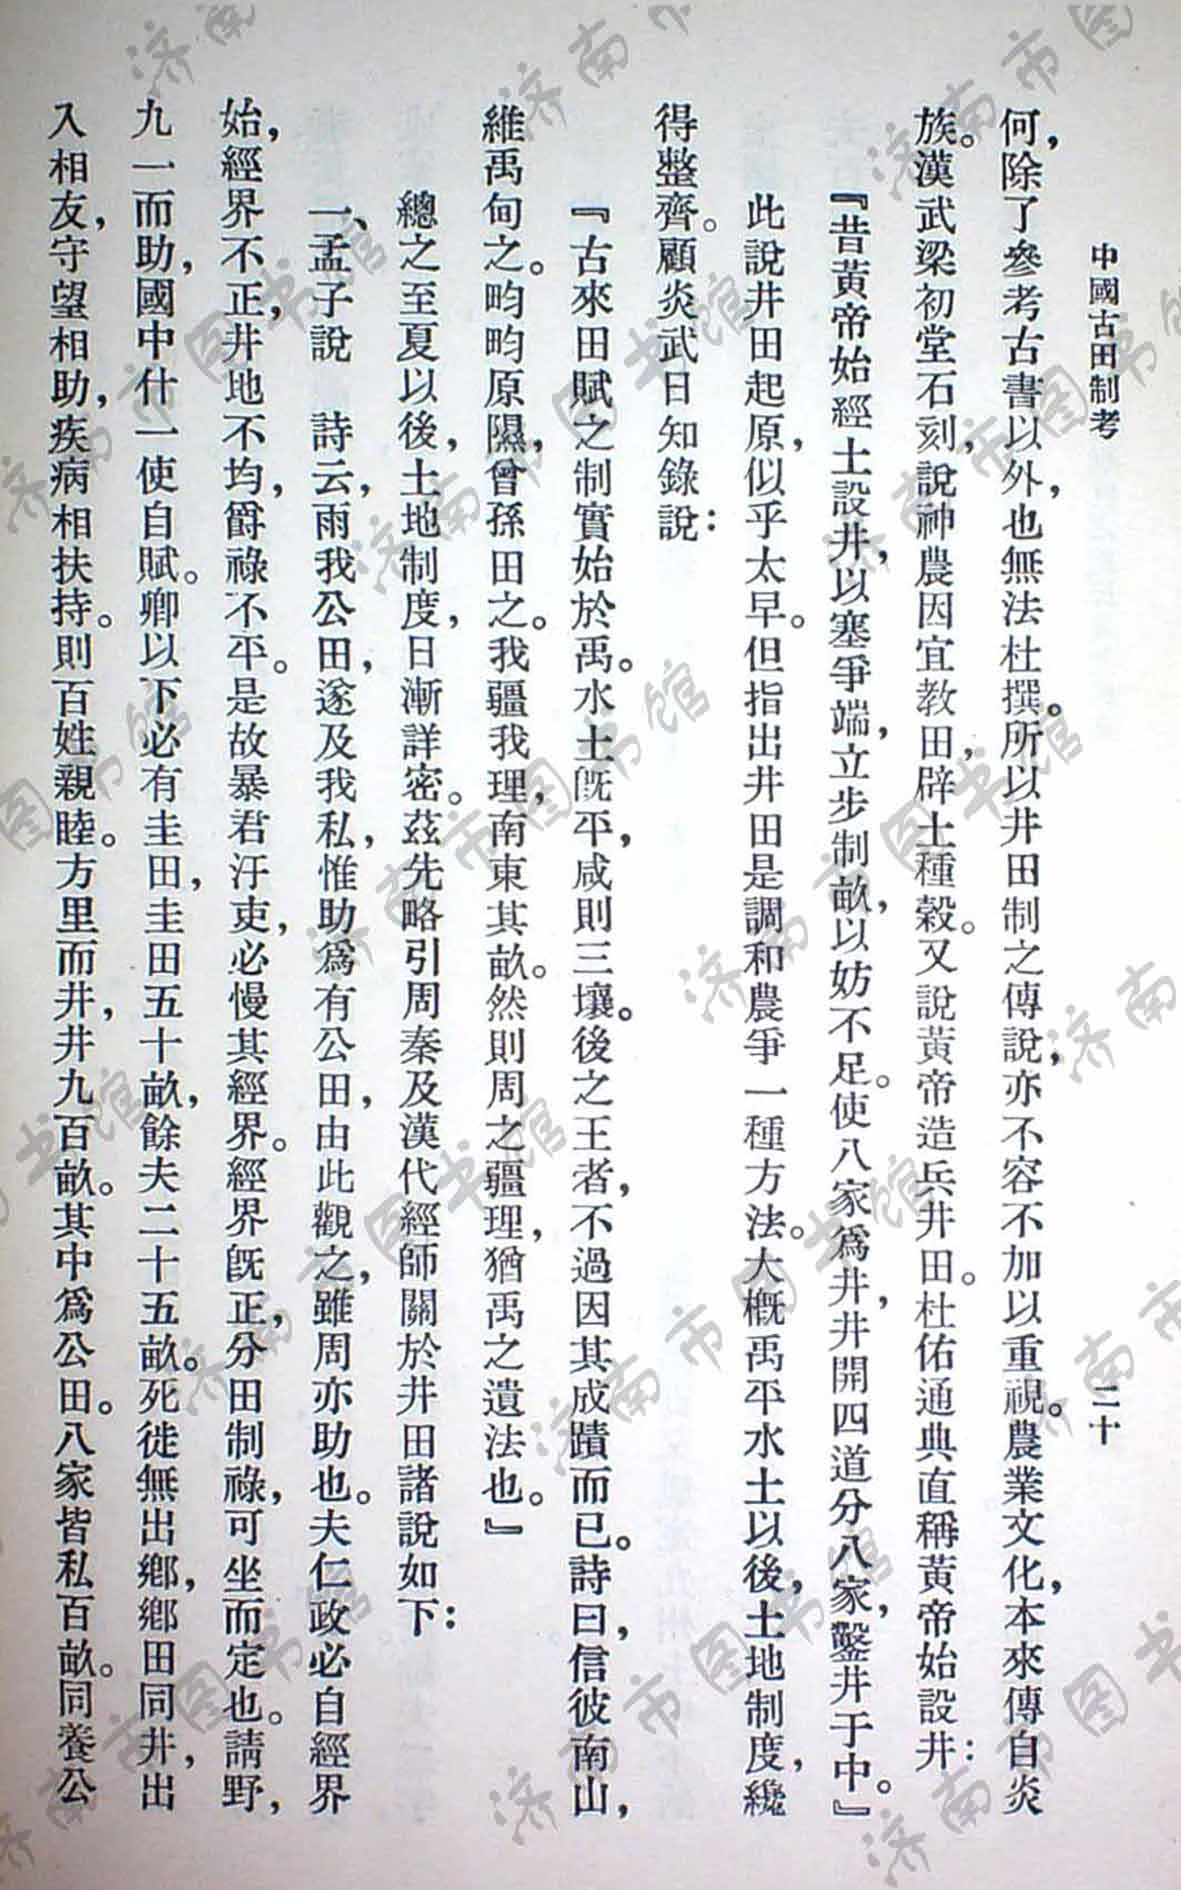 中國古田制考
二十
何，除了參考古書以外，也無法杜撰。所以井田制之傳說，亦不容不加以重視。農業文化，本來傳自炎
族。漢武梁初堂石刻，說神農因宜教田，辟土種穀。又說黃帝造兵井田。杜佑通典直稱黃帝始設井：
『昔黃帝始經土設井，以塞爭端，立步制畝，以妨不足。使八家爲井，井開四道分八家，鑿井于中。』
此說井田起原，似乎太早。但指出井田是調和農爭一種方法。大概禹平水土以後，土地制度，纔
得整齊。顧炎武日知錄說：
『古來田賦之制實始於禹。水土旣平，咸則三壤。後之王者，不過因其成蹟而已。詩曰，信彼南山，
維禹甸之。畇畇原隰，曾孫田之。我疆我理，南東其畝。然則周之疆理，猶禹之遺法也。』
總之至夏以後，土地制度，日漸詳密。茲先略引周秦及漢代經師關於井田諸說如下：
一、孟子說　詩云，雨我公田，遂及我私，惟助爲有公田，由此觀之，雖周亦助也。夫仁政必自經界
始，經界不正，井地不均，爵祿不平。是故暴君汙吏，必慢其經界。經界旣正，分田制祿，可坐而定也。請野，
九一而助，國中什一使自賦。卿以下必有圭田，圭田五十畝，餘夫二十五畝。死徙無出鄉，鄉田同井，出
入相友，守望相助，疾病相扶持。則百姓親睦。方里而井，井九百畝。其中爲公田。八家皆私百畝。同養公
济南市图书馆